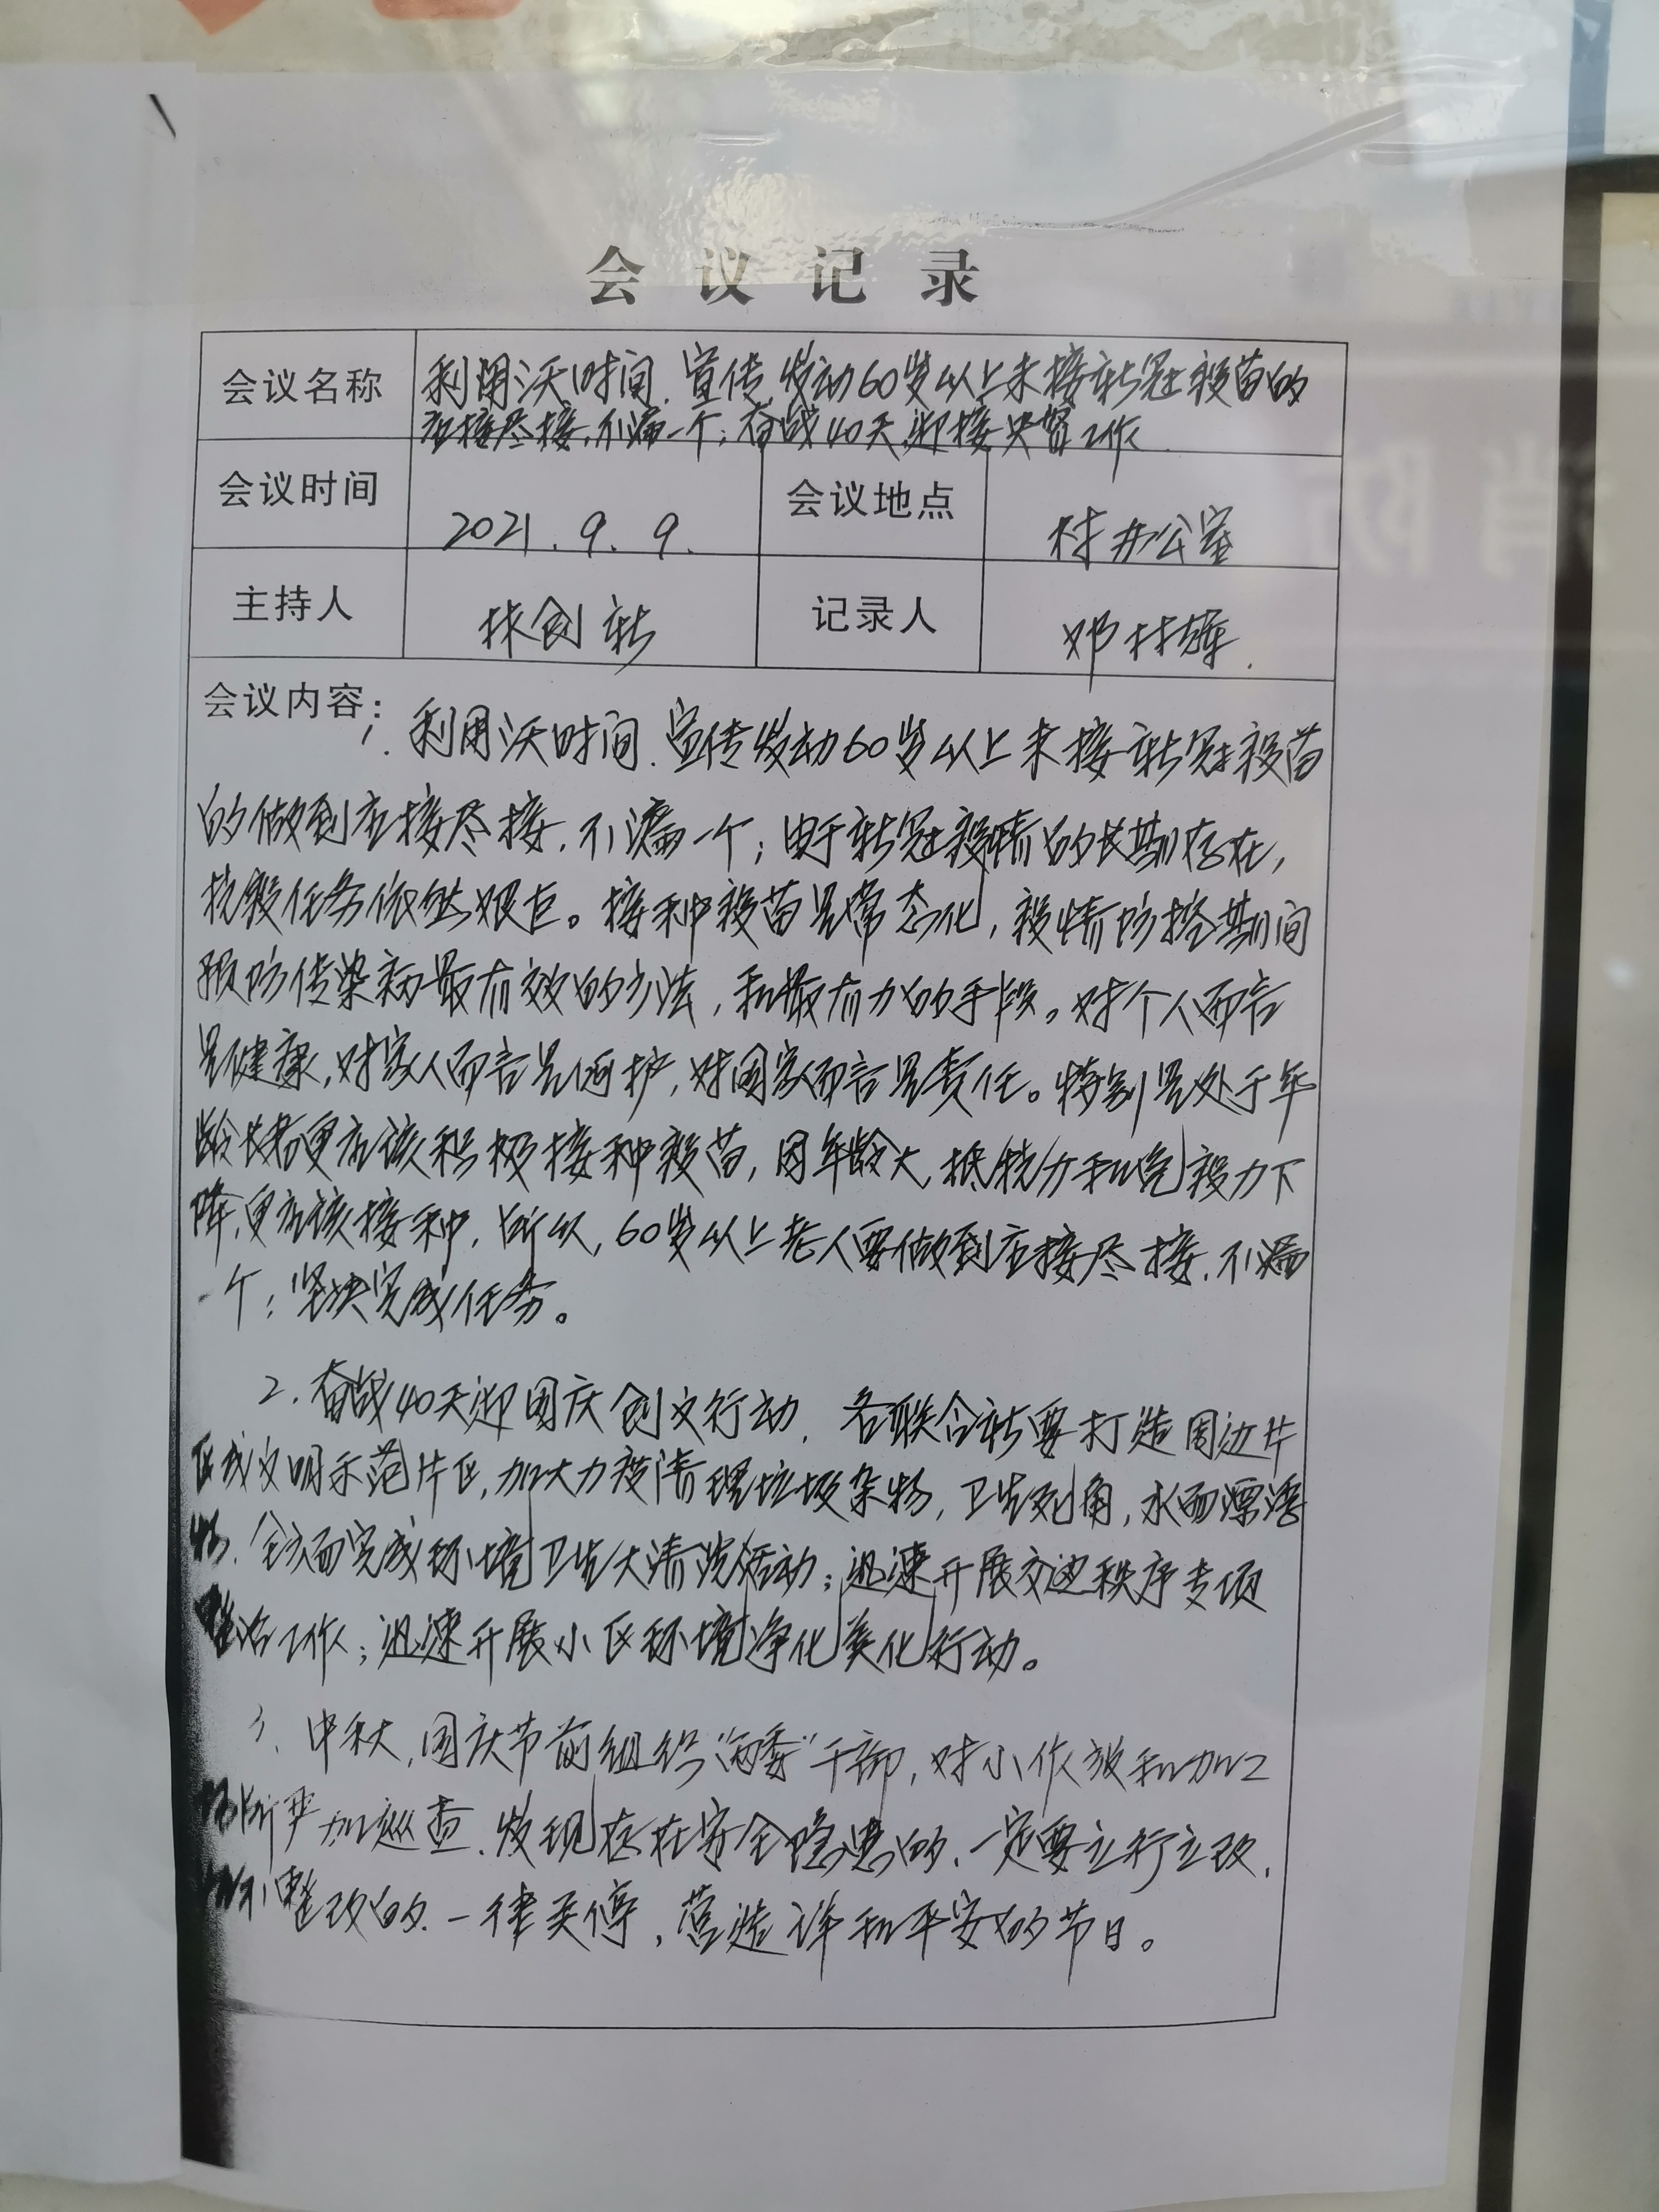 会议记录
会议名称 利用沃时间.宣传发动60岁以上未接新冠疫苗的
应接尽接,不漏一个;奋战40天迎接央督工作
会议时间 2021.9.9. 会议地点 村办公室
主持人 林创新 记录人 邓村雄.
会议内容:
1.利用沃时间.宣传发动60岁以上未接新冠疫苗
的做到应接尽接.不漏一个;由于新冠疫情的长期存在,
抗疫任务依然艰巨。接种疫苗是常态化,疫情防控期间
预防传染病最有效的方法,和最有力的手段。对个人而言
是健康,对家人而言是呵护,对国家而言是责任。特别是处于年
龄长者更应该积极接种疫苗,因年龄大,抵抗力和免疫力下
降,更应该接种,所以,60岁以上老人要做到应接尽接.不漏
一个;坚决完成任务。
2.奋战40天迎国庆创文行动.各联合社要打造周边片
区成文明示范片区,加大力度清理垃圾杂物,卫生死角,水面漂浮
物.全面完成环境卫生大清洗活动;迅速开展交通秩序专项
整治工作;迅速开展小区环境净化美化行动。
3.中秋,国庆节前组织“两委”干部,对小作坊和加工
场所严加巡查.发现存在安全隐患的、一定要立行立改.
如不整改的.一律关停,营造祥和平安的节日。
消防